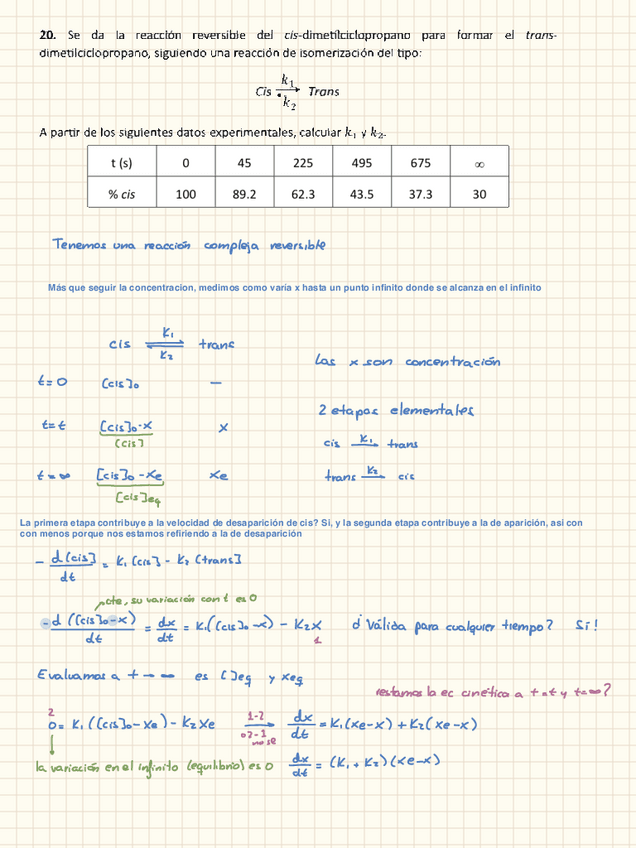 20. Se da la reacción reversible del cis-dimetilciclopropano para formar el trans-
dimetilciclopropano, siguiendo una reacción de isomerización del tipo:
k₁
Cis ⇄ Trans
k₂
A partir de los siguientes datos experimentales, calcular k₁ y k₂.
t (s) 0 45 225 495 675 ∞
% cis 100 89.2 62.3 43.5 37.3 30
Tenemos una reacción compleja reversible
Más que seguir la concentracion, medimos como varía x hasta un punto infinito donde se alcanza en el infinito
cis ⇄ trans
K₁
K₂
t=0 [cis]₀ —
t=t [cis]₀-x x
[cis]
t=∞ [cis]₀-xe xe
[cis]eq
Las x son concentración
2 etapas elementales
cis —K₁→ trans
trans —K₂→ cis
La primera etapa contribuye a la velocidad de desaparición de cis? Si, y la segunda etapa contribuye a la de aparición, asi con
con menos porque nos estamos refiriendo a la de desaparición
- d[cis]/dt = K₁[cis] - K₂[trans]
cte, su variación con t es 0
-d([cis]₀-x)/dt = dx/dt = K₁([cis]₀-x) - K₂x ¿Válida para cualquier tiempo? Sí!
1
Evaluamos a t→∞ es []eq y xeq
restamos la ec cinética a t=t y t=∞?
2
0 = K₁([cis]₀-xe) - K₂xe 1-2 → dx/dt = K₁(xe-x) + K₂(xe-x)
o 2-1
no se
la variación en el infinito (equilibrio) es 0 dx/dt = (K₁+K₂)(xe-x)